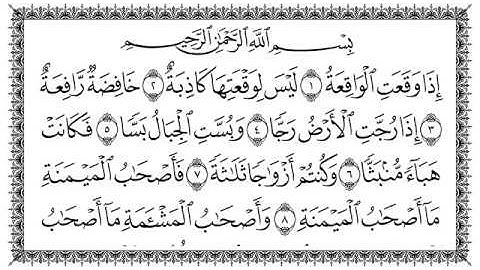 بِسْمِ اللَّهِ الرَّحْمَٰنِ الرَّحِيمِ
إِذَا وَقَعَتِ الْوَاقِعَةُ ١ لَيْسَ لِوَقْعَتِهَا كَاذِبَةٌ ٢ خَافِضَةٌ رَّافِعَةٌ
٣ إِذَا رُجَّتِ الْأَرْضُ رَجًّا ٤ وَبُسَّتِ الْجِبَالُ بَسًّا ٥ فَكَانَتْ
هَبَاءً مُّنْبَثًّا ٦ وَكُنْتُمْ أَزْوَاجًا ثَلَاثَةً ٧ فَأَصْحَابُ الْمَيْمَنَةِ
مَا أَصْحَابُ الْمَيْمَنَةِ ٨ وَأَصْحَابُ الْمَشْـَٔمَةِ مَا أَصْحَابُ